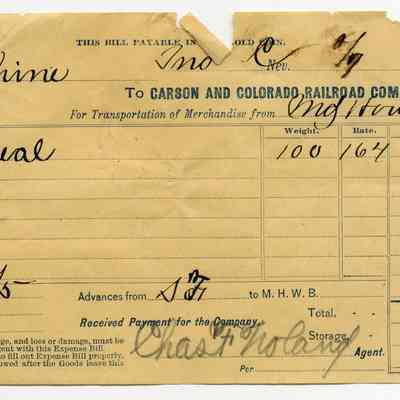 THIS BILL PAYABLE IN GOLD COIN.
Nev.
To CARSON AND COLORADO RAILROAD COM
For Transportation of Merchandise from
Weight. Rate.
eal 100 164
Advances from S F to M. H. W. B.
Total.
Received Payment for the Company,
Storage
ge, and loss or damage, must be
ent with this Expense Bill.
to fill out Expense Bill properly.
owed after the Goods leave this
Chas F Noland Agent.
Per